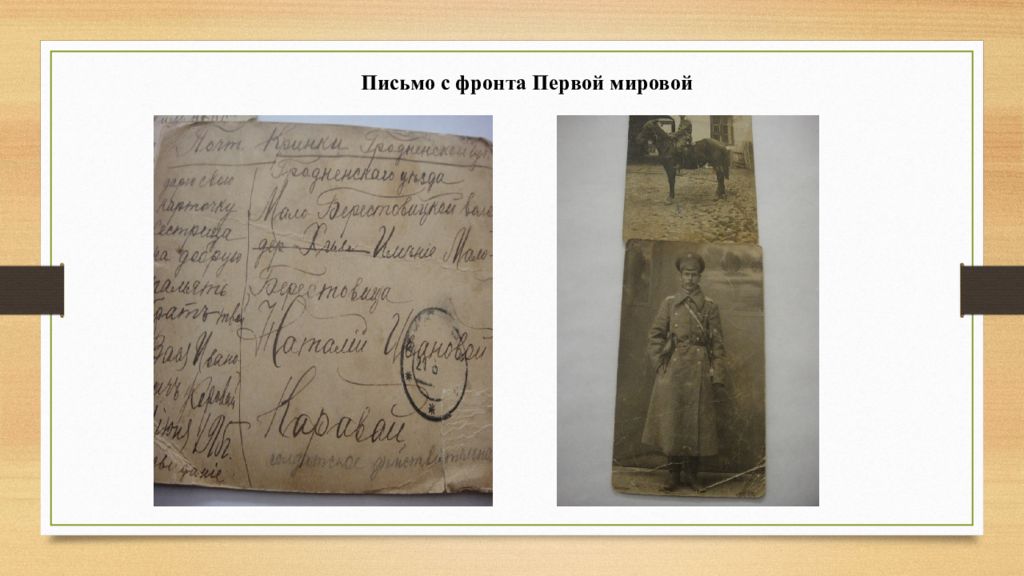 Письмо с фронта Первой мировой
Почт Крынки Гродненской губ
Гродненскаго уезда
Мало Берестовицкой воло
дер Имение Мало-
Берестовица
Наталiи Ивановой
Каравай
дарю свою
карточку
сестрица
на добрую
память
братъ твой
Вас Ивано
вичъ Каравай
21